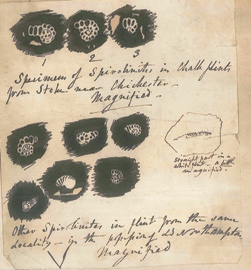 1 2 3
Specimens of Spirolinites in Chalk flints
from Stoke near Chichester.
Magnified.
Straight part in a
white flint. a fifth
magnified.
Other Spirolinites in flint from the same
Locality — in the possession of Ld Northampton
Magnified